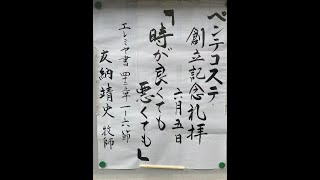 ペンテコステ
創立記念礼拝
六月五日
「時が良くても
悪くても」
エレミヤ書 四二章 一～六節
友納靖史 牧師